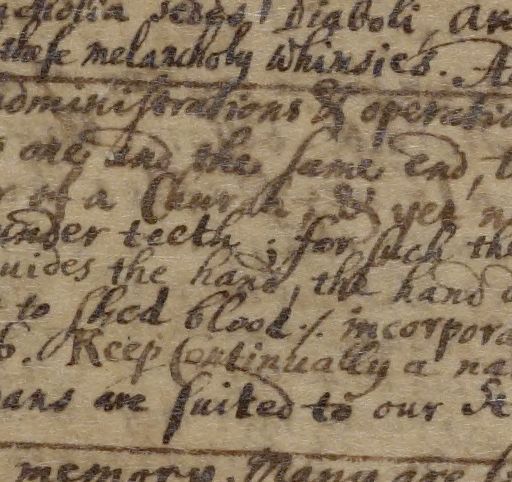 sedes Diaboli, an
these melancholy whimsies. A
administrations & operatio
one and the same end,
of a Church; & yet n
under teeth; for such the
uides the hand, the hand
to shed blood./. incorpora
6. Keep Continually a na
eans are suited to our de
memory. Many are